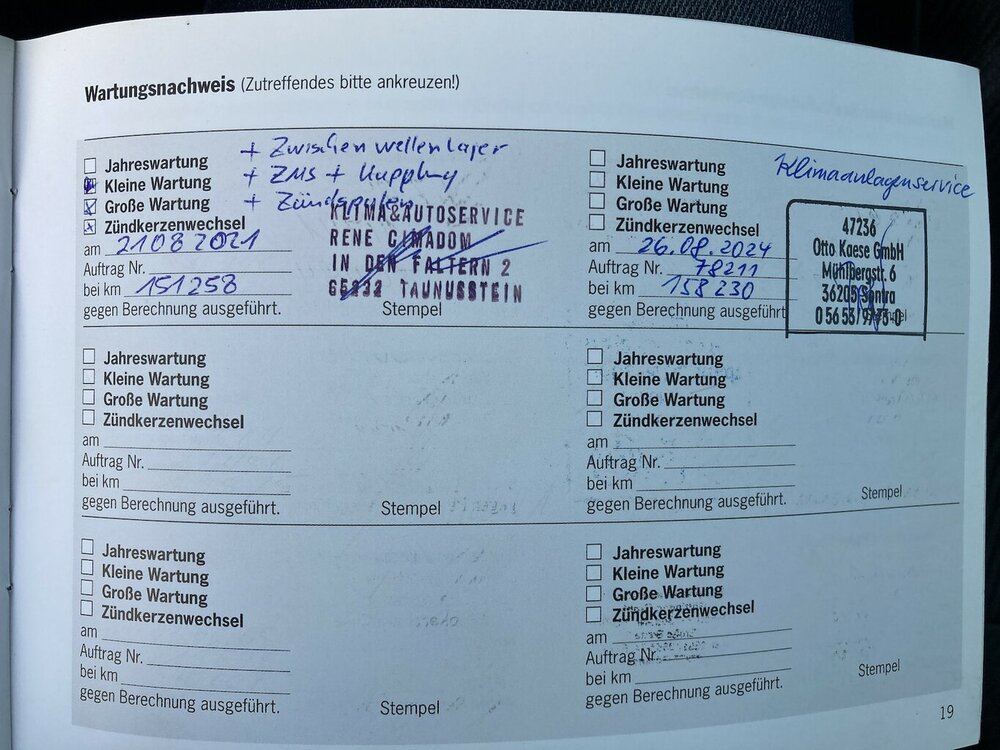 Wartungsnachweis (Zutreffendes bitte ankreuzen!)
Jahreswartung
Kleine Wartung
Große Wartung
Zündkerzenwechsel
+ Zwischenwellenlager
+ ZMS + Kupplung
+ Zündspulen
KLIMA&AUTOSERVICE
RENE CIMADOM
IN DEN FALTERN 2
65232 TAUNUSSTEIN
am 21082021
Auftrag Nr.
bei km 151258
gegen Berechnung ausgeführt.
Stempel
Jahreswartung
Kleine Wartung
Große Wartung
Zündkerzenwechsel
Klimaanlagenservice
am 26.08.2024
Auftrag Nr. 78211
bei km 158230
gegen Berechnung ausgeführt
47236
Otto Kaese GmbH
Mühlbergstr. 6
36205 Sontra
0 56 53/9773-0
Jahreswartung
Kleine Wartung
Große Wartung
Zündkerzenwechsel
am
Auftrag Nr.
bei km
gegen Berechnung ausgeführt.
Stempel
Jahreswartung
Kleine Wartung
Große Wartung
Zündkerzenwechsel
am
Auftrag Nr.
bei km
gegen Berechnung ausgeführt.
Stempel
Jahreswartung
Kleine Wartung
Große Wartung
Zündkerzenwechsel
am
Auftrag Nr.
bei km
gegen Berechnung ausgeführt.
Stempel
Jahreswartung
Kleine Wartung
Große Wartung
Zündkerzenwechsel
am
Auftrag Nr.
bei km
gegen Berechnung ausgeführt.
Stempel
19